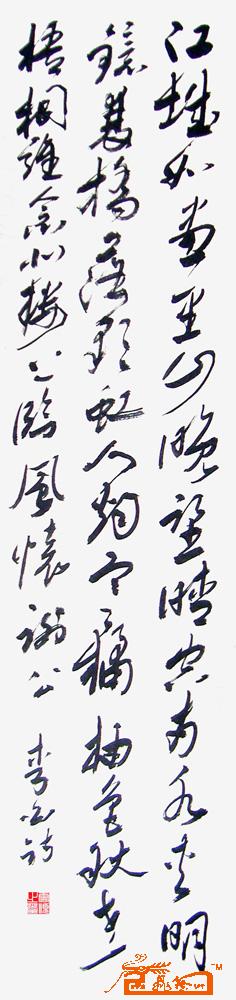 江城如畫里山晚望晴空兩水夾明
鏡雙橋落彩虹人烟寒橘柚色秋老
梧桐誰念北樓上臨風懷謝公
李白詩